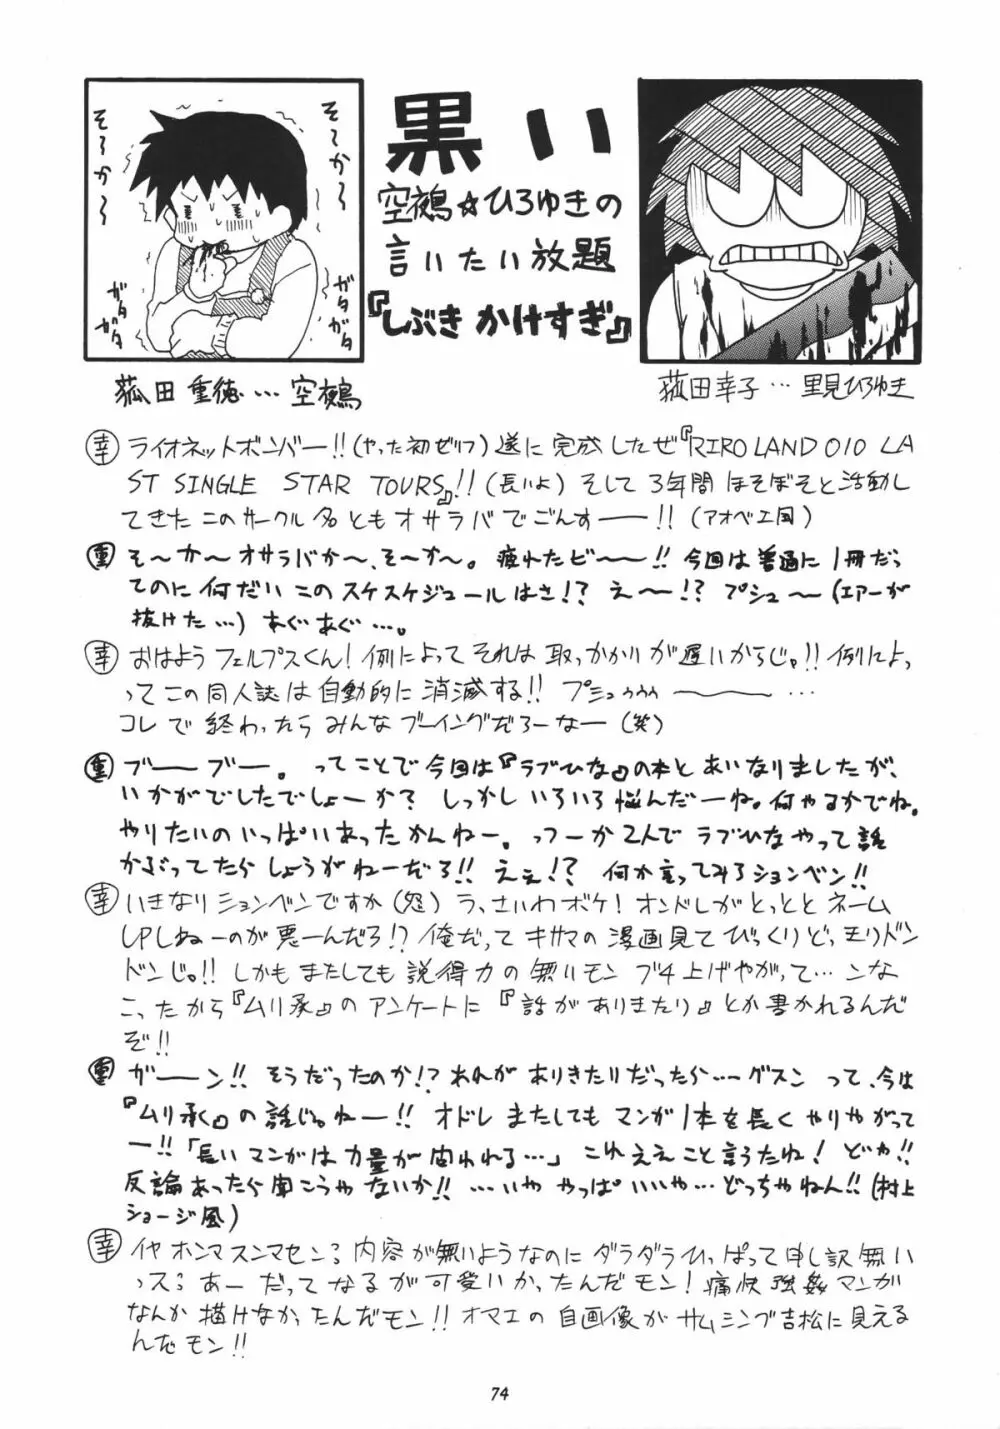 黒い
空鵺☆ひろゆきの
言いたい放題
『しぶきかけすぎ』
そ〜か〜
そ〜か〜
ガタガタ
ガタガタ
荻田重徳…空鵺
荻田幸子…里見ひろゆき
幸 ライオネットボンバー!!(やった初ゼリフ)遂に完成したぜ『RIROLAND 010 LA
ST SINGLE STAR TOURS』!!(長いよ)そして3年間ほそぼそと活動し
てきたこのサークル名ともオサラバでごんすー!!(アオベエ風)
重 そ〜か〜オサラバか〜、そ〜か〜。疲れたビ〜!!今回は普通に1冊だっ
てのに何だいこのスケスケジュールはさ!?え〜!?プシュ〜(エアーが
抜けた…)あぐあぐ…。
幸 おはようフェルプスくん!例によってそれは取っかかりが遅いからじゃ!!例によ
ってこの同人誌は自動的に消滅する!!プシュゥゥゥ〜…
コレで終わったらみんなブーイングだろーなー(笑)
重 ブーブー。ってことで今回は『ラブひな』の本とあいなりましたが、
いかがでしたでしょーか?しっかしいろいろ悩んだーね。何やるかでね。
やりたいのいっぱいあったかんねー。っつーか2人でラブひなやって話
かぶってたらしょうがねーだろ!!ええ!?何か言ってみろションベン!!
幸 いきなりションベンですか(怒)うっさいわボケ!オンドレがとっととネーム
UPしねーのが悪ーんだろ!?俺だってキサマの漫画見てびっくりどっきりドン
ドンじゃ!!しかもまたしても説得力の無いモンブチ上げやがって…ンな
こったから『ムリ承』のアンケートに『話がありきたり』とか書かれるんだ
ぞ!!
重 ガーン!!そうだったのか!?われがありきたりだったら…グスンって、今は
『ムリ承』の話じゃねー!!オドレまたしてもマンガ1本を長くやりやがって
ー!!「長いマンガは力量が問われる…」これええこと言うたね!どや!!
反論あったら聞こうやないか!!…いややっぱいいや…どっちやねん!!(村上
ショージ風)
幸 イヤホンマスンマセン;内容が無いようなのにダラダラひっぱって申し訳無い
ッス;あーだってなるが可愛いかったんだモン!痛快強姦マンガ
なんか描けなかったんだモン!!オマエの自画像がサムシング吉松に見える
んだモン!!
74